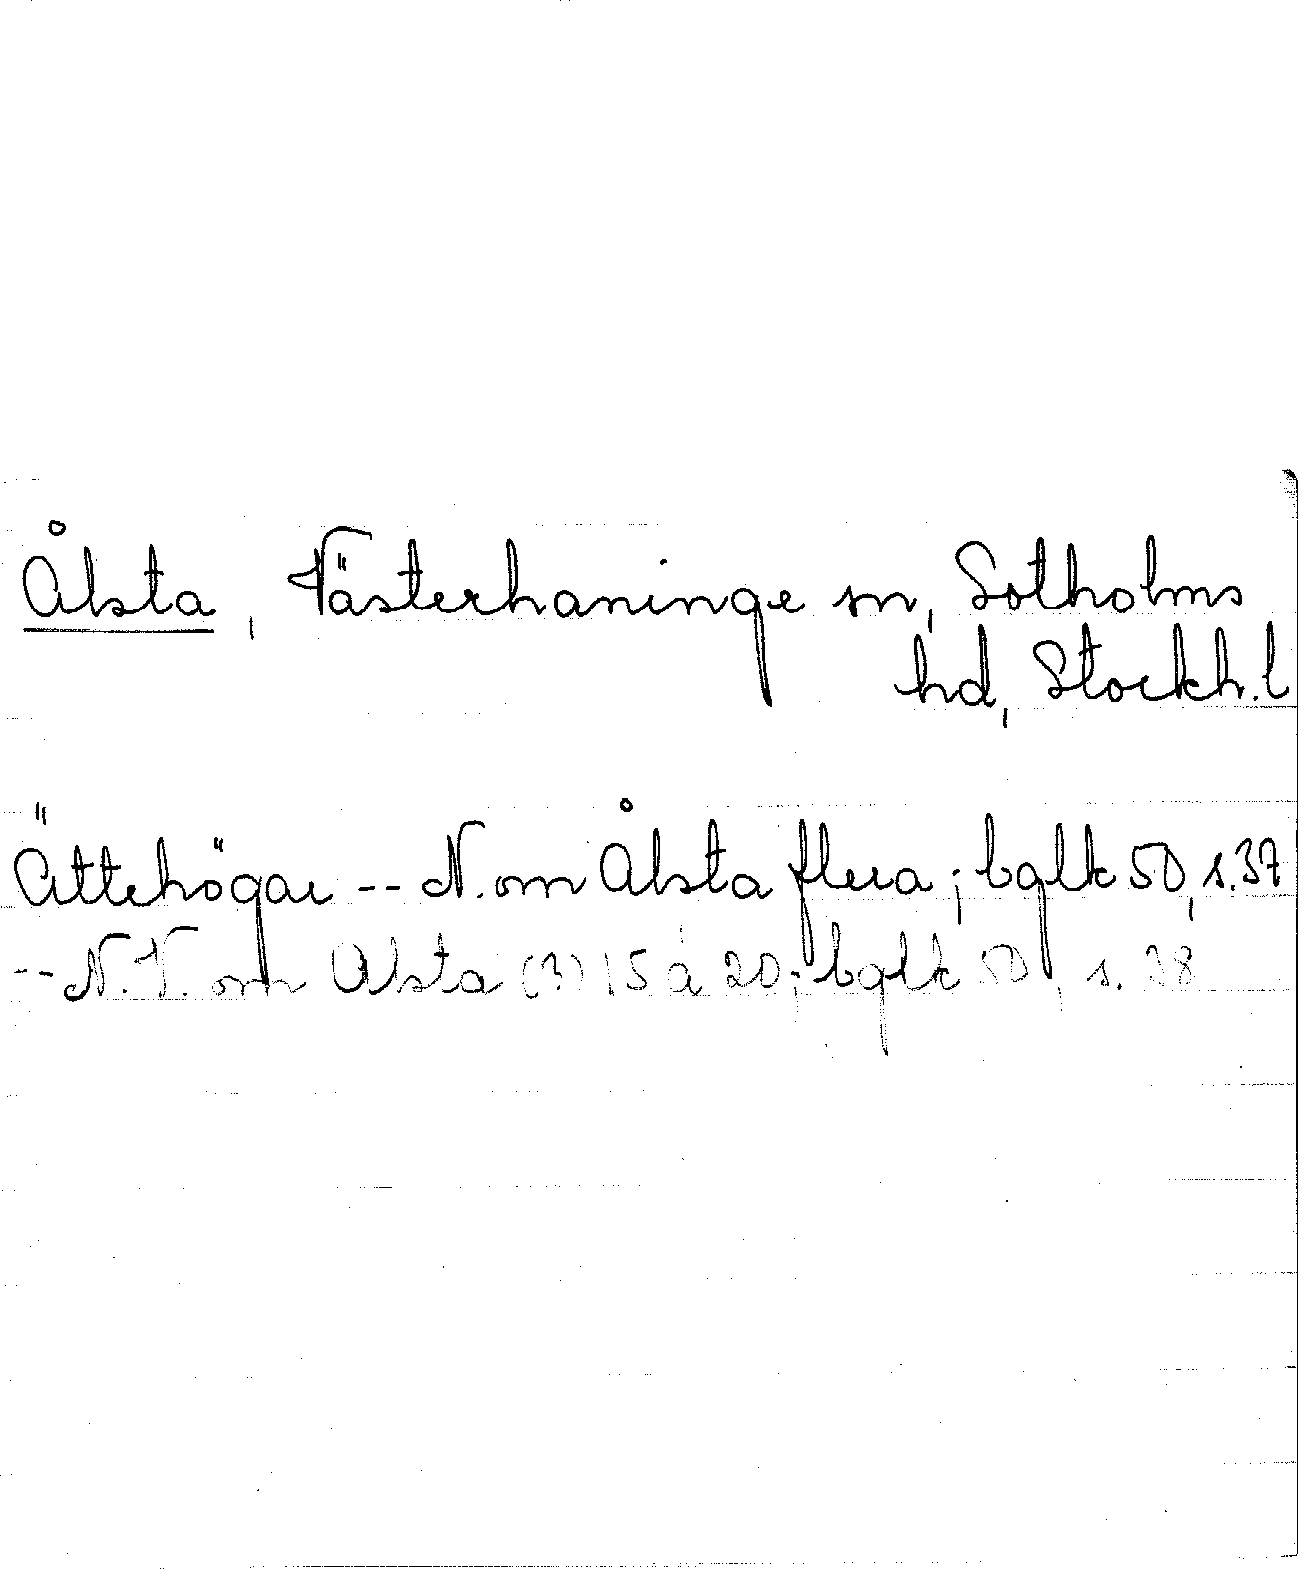 Ålsta, Västerhaninge sn, Sotholms
hd, Stockh.l
Ättehögar -- N. om Ålsta flera; bglk 50, s. 37
-- N.V. om Alsta (?) 15 à 20; bglk 50, s. 38